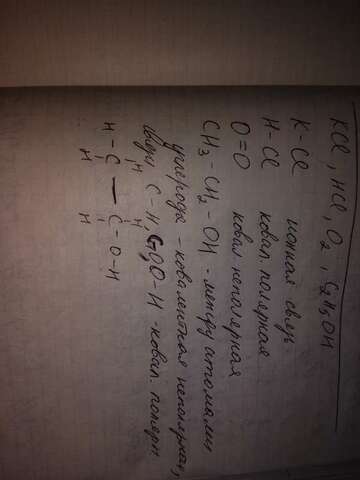 KCl, HCl, O2, C2H5OH
K-Cl ионная связь
H-Cl ковал. полярная
O=O ковал неполярная
CH3-CH2-OH - между атомами
углерода - ковалентная неполярная,
связи C-H, O-H - ковал. полярн.
H H
H-C-C-O-H
H H